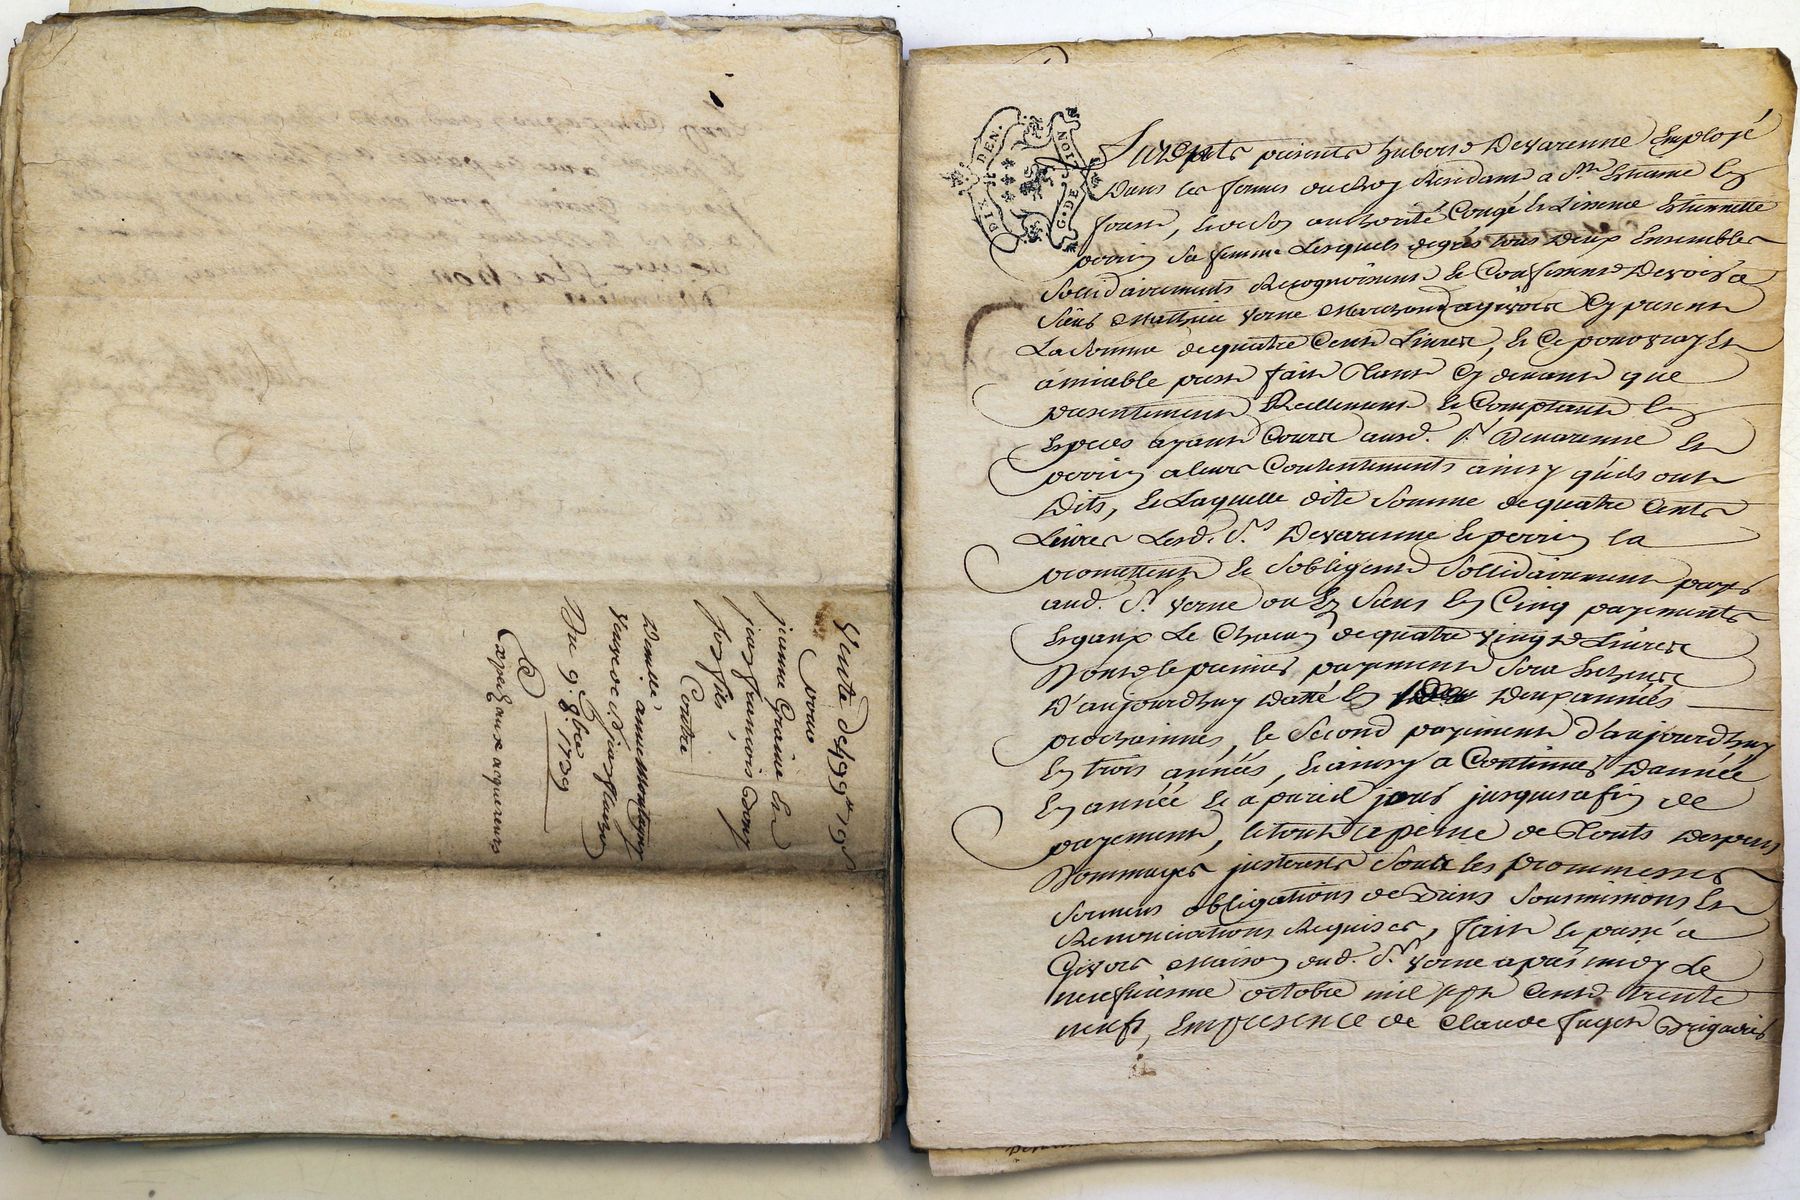 Vente de 499ᴸᵗ 19ˢ
pour
jeanne Graine et
jean francois
son fils,
Contre
Demˡˡᵉ anne Montagny
Veuve de Sʳ jean
Du 9. 8bre 1739
Expᵉᵉ aux acquereurs
DIX DEN.
G. DE LION
Furent presents hubert Devarenne Employé
Dans les fermes du Roy Residant a Sᵗ Estienne En
forest, et de son authorité Congé et Licence Estiennette
perrin sa femme Lesquels de gré tous Deux Ensemble
Sollidairements Recognoissent et Confessent Devoir a
Sieur Mathieu Verne Marchand a givors Cy present
La somme de quatre Cent Livres, et Ce pour vray et
amiable prest fait Cy devant que
presentement Reellement et Comptant En
Especes ayant Cours ausd. Sʳ Devarenne et
perrin a leurs Contentements ainsy qu'ils ont
Dits, et Laquelle dite Somme de quatre Cents
Livres Lesd. Sʳˢ Devarenne et perrin la
promettent et S'obligent Sollidairement payer
aud. Sʳ Verne ou Es Siens En Cinq payements
Egaux Le Chacun de quatre vingt Livres
Dont le premier payement Sera
D'aujourdhuy Datte En Deux années
prochaines, le Second payement d'aujourdhuy
En trois années, et ainsy a Continuer D'année
En année et a pareil jour jusques a fin de
payement, le tout a peine de touts Despens
Dommages jnterests Sous les promesses
Serments obligations de Biens Soumissions et
Renonciations Requises, fait et passé a
Givors Maison dud. Sʳ Verne apres midy Le
neufvieme octobre mil sept Cent trente
neuf, En presence de Claude Brigadier